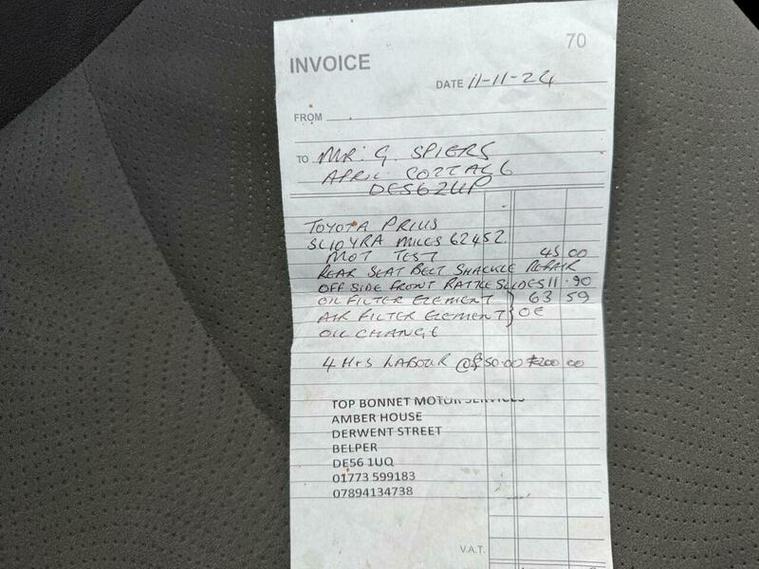 70
INVOICE
DATE 11-11-24
FROM
TO MR. G. SPIERS
APRIL COTTAGE
DE562UP
TOYOTA PRIUS
SL10YRA MILES 62452
MOT TEST 45 00
REAR SEAT BELT SHACKLE REPAIR
OFF SIDE FRONT RATTLE SLIDES 11.90
OIL FILTER ELEMENT } 63 59
AIR FILTER ELEMENT } OE
OIL CHANGE
4 HRS LABOUR @ £50.00 £200 00
TOP BONNET MOTOR SERVICES
AMBER HOUSE
DERWENT STREET
BELPER
DE56 1UQ
01773 599183
07894134738
V.A.T.